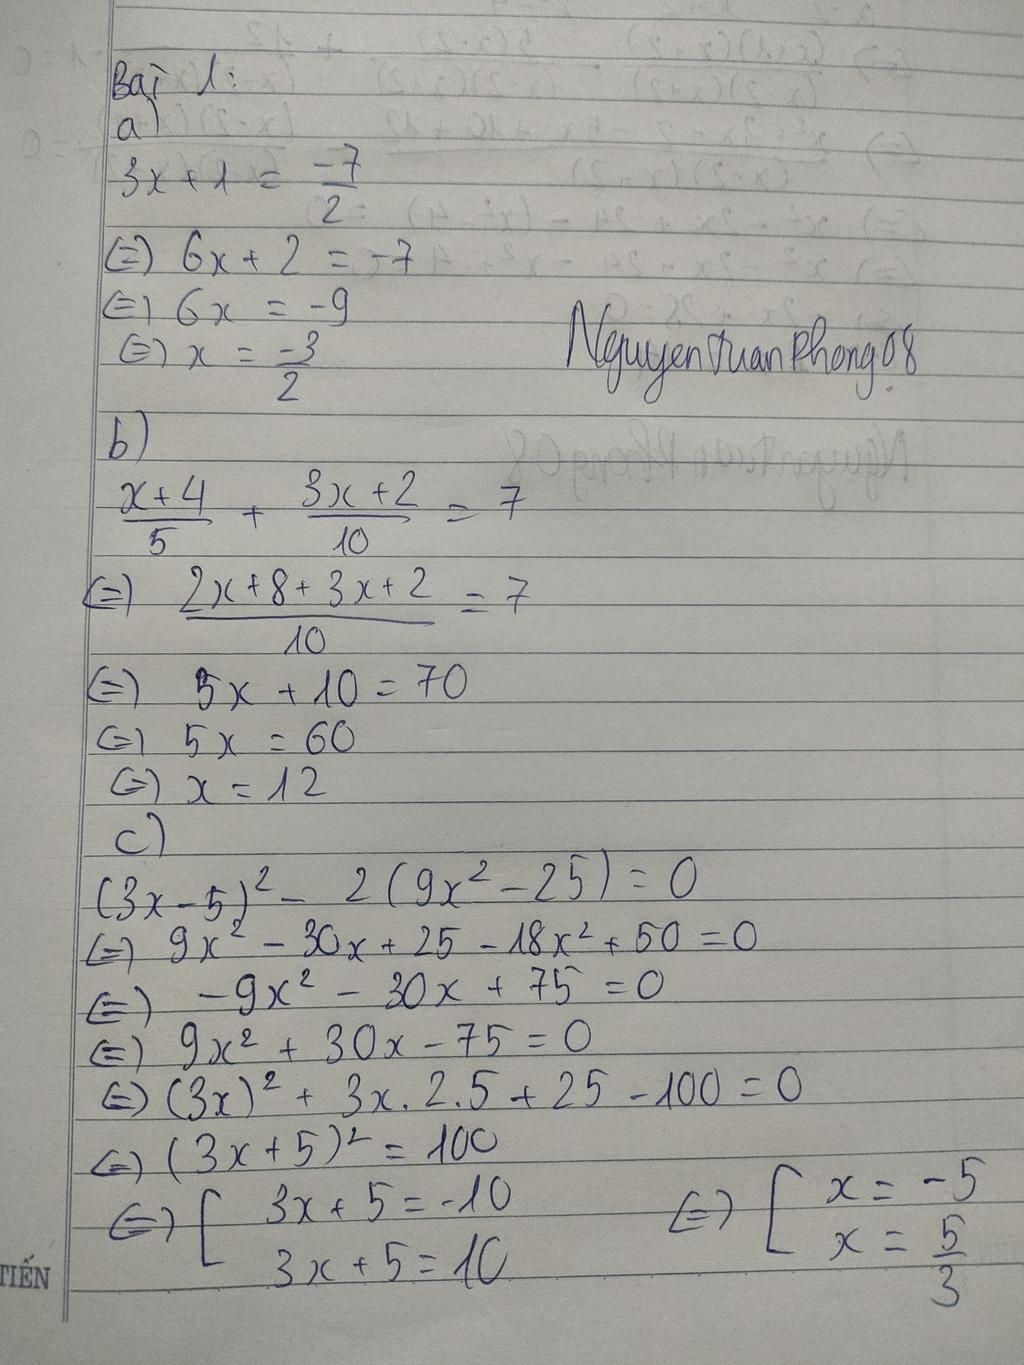 Bài 1:
a)
3x + 1 = -7/2
(=) 6x + 2 = -7
(=) 6x = -9
(=) x = -3/2
NguyenTuanPhong08
b)
x+4/5 + 3x+2/10 = 7
(=) 2x+8+3x+2/10 = 7
(=) 5x + 10 = 70
(=) 5x = 60
(=) x = 12
c)
(3x-5)² - 2(9x² - 25) = 0
(=) 9x² - 30x + 25 - 18x² + 50 = 0
(=) -9x² - 30x + 75 = 0
(=) 9x² + 30x - 75 = 0
(=) (3x)² + 3x.2.5 + 25 - 100 = 0
(=) (3x+5)² = 100
(=) [ 3x + 5 = -10 (=) [ x = -5
3x + 5 = 10 x = 5/3
TIẾN